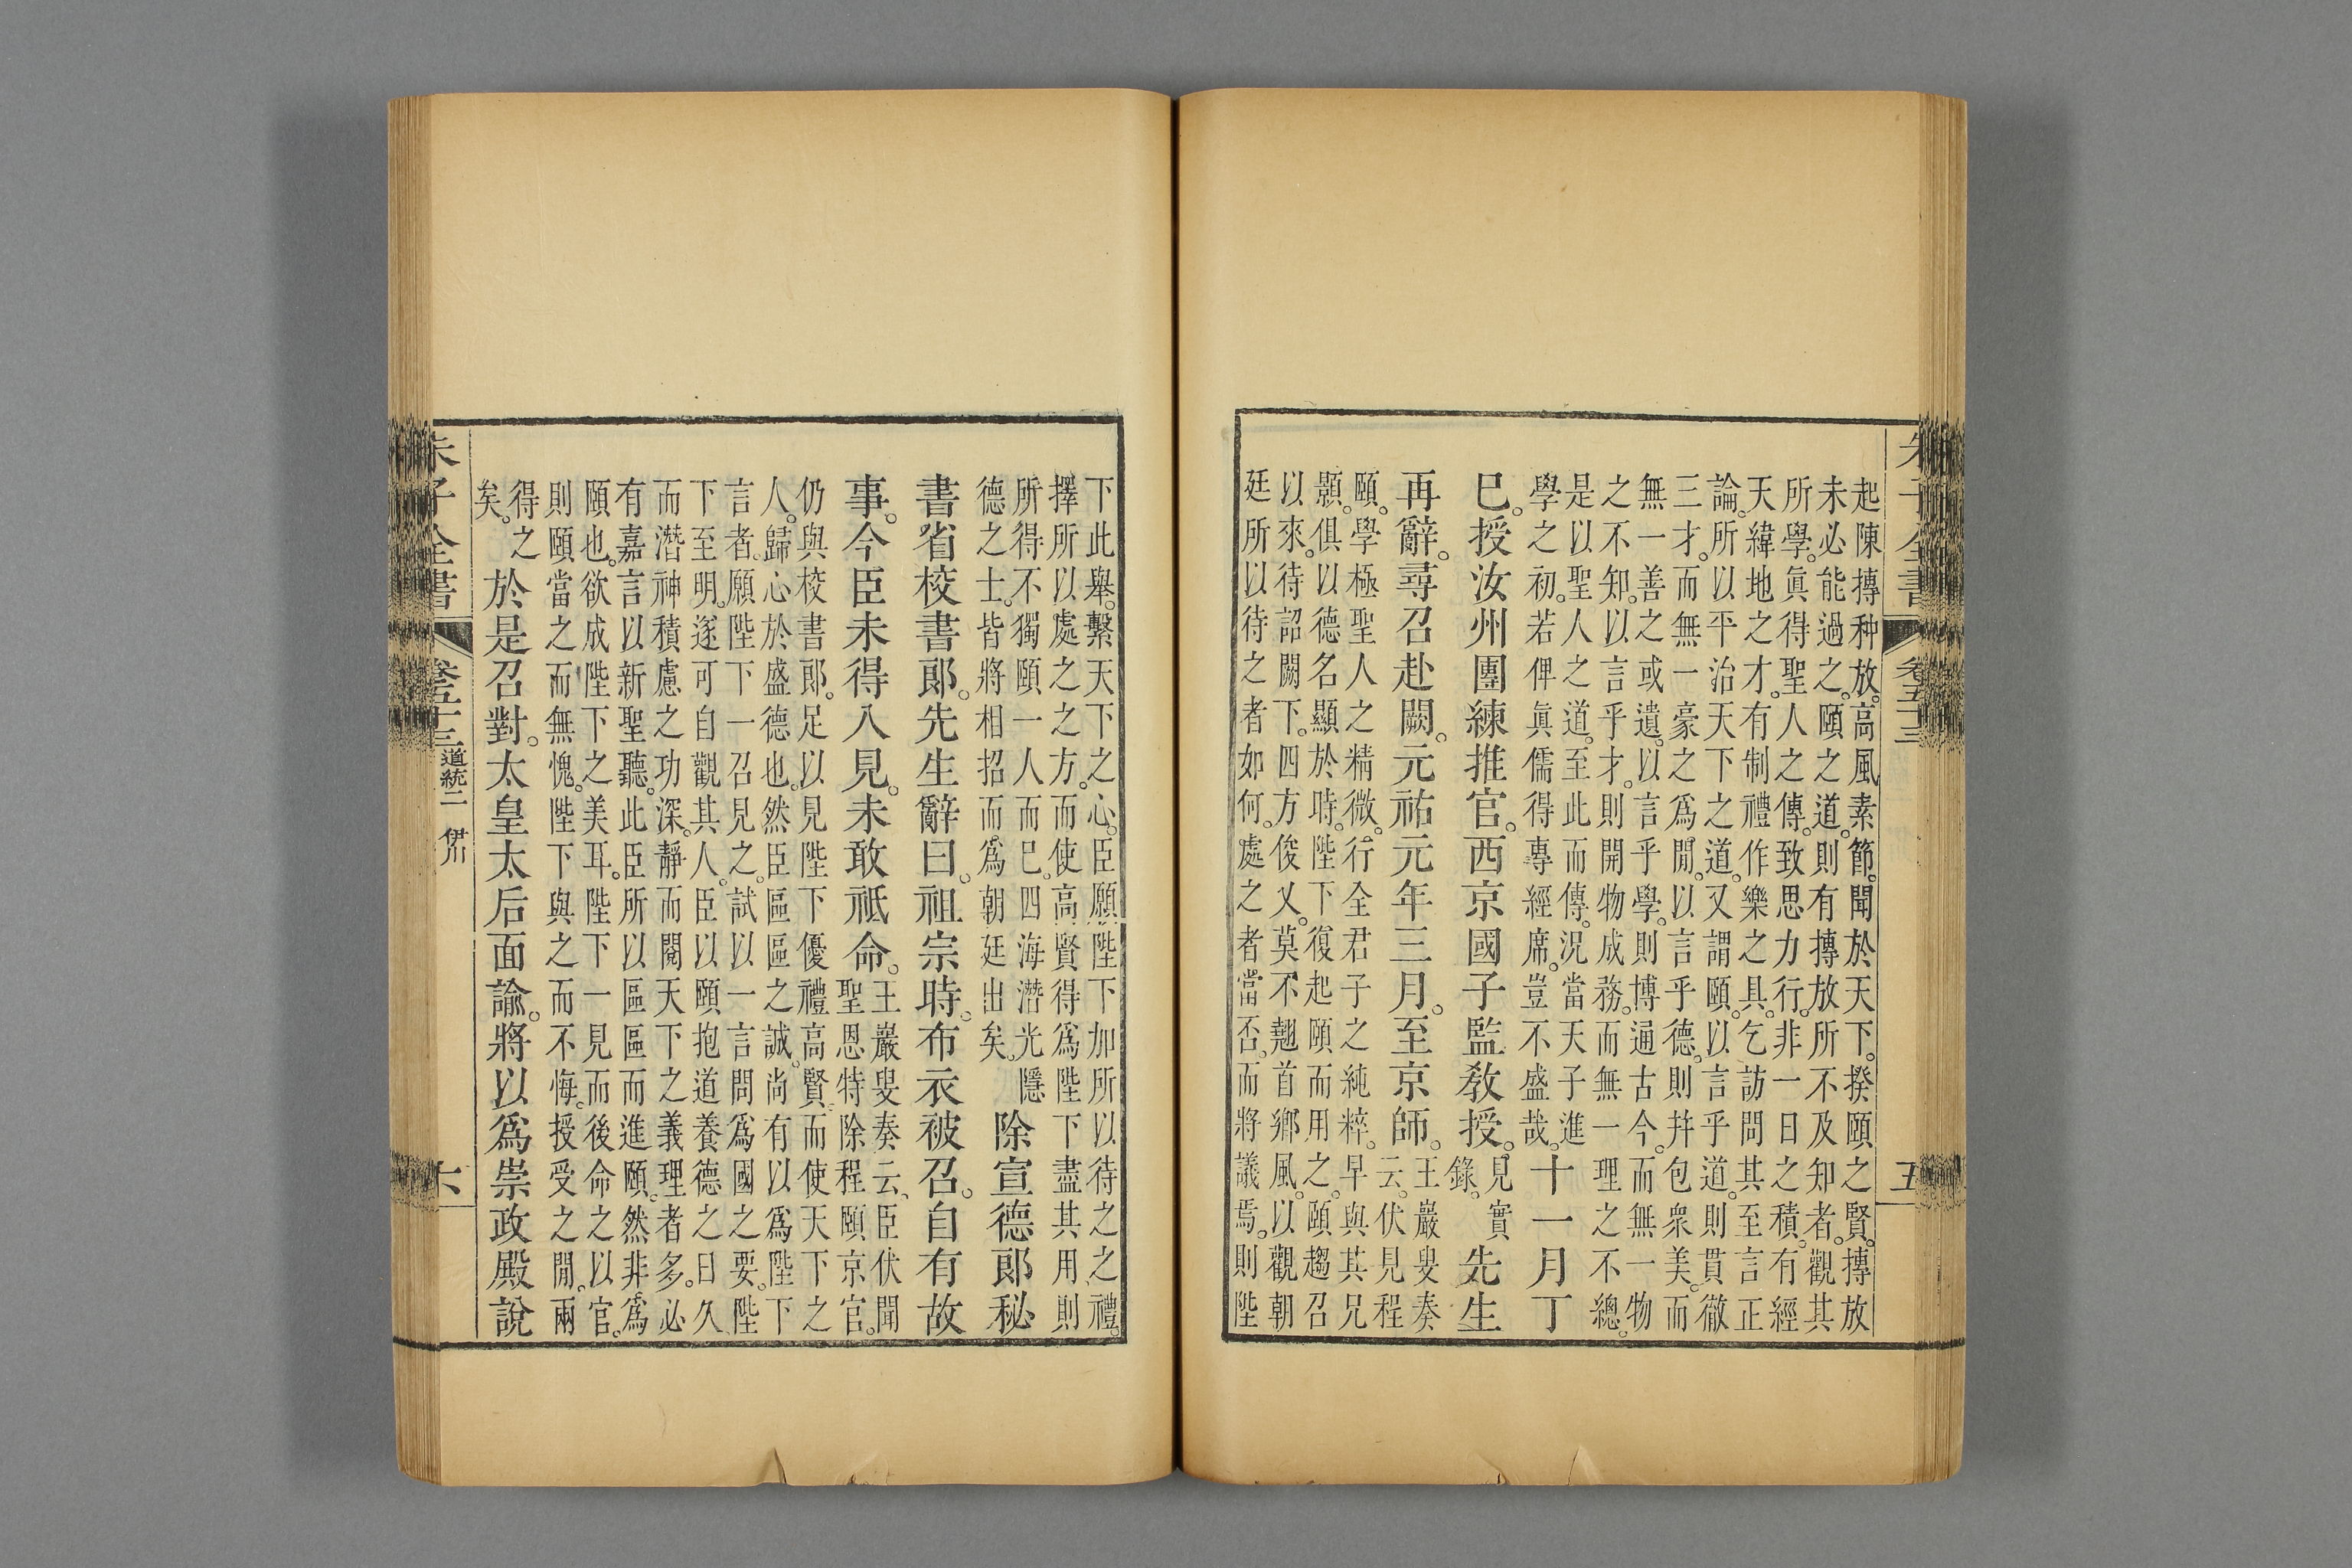 朱子全書 卷五十三 五
起陳摶种放。高風素節。聞於天下。揆頤之賢。摶放
未必能過之。頤之道。則有摶放所不及知者。觀其
所學。眞得聖人之傳。致思力行。非一日之積。有經
天緯地之才。有制禮作樂之具。乞訪問其至言正
論。所以平治天下之道。又謂頤。以言乎道。則貫徹
三才。而無一豪之爲閒。以言乎德。則幷包衆美。而
無一善之或遺。以言乎學。則博通古今。而無一物
之不知。以言乎才。則開物成務。而無一理之不總。
是以聖人之道。至此而傳。況當天子進
學之初。若俾眞儒得專經席。豈不盛哉。
十一月丁
巳。授汝州團練推官。西京國子監敎授。
見實
錄。
先生
再辭。尋召赴闕。元祐元年三月。至京師。
王巖叟奏
云。伏見程
頤。學極聖人之精微。行全君子之純粹。早與其兄
顥。俱以德名顯於時。陛下復起頤而用之。頤趨召
以來。待詔闕下。四方俊乂。莫不翹首鄉風。以觀朝
廷所以待之者如何。處之者當否。而將議焉。則陛
下此舉。繫天下之心。臣願陛下加所以待之之禮。
擇所以處之之方。而使高賢得爲陛下盡其用。則
所得不獨頤一人而已。四海潛光隱
德之士。皆將相招而爲朝廷出矣。
除宣德郎秘
書省校書郎。先生辭曰。祖宗時。布衣被召。自有故
事。今臣未得入見。未敢祗命。
王巖叟奏云。臣伏聞
聖恩特除程頤京官。
仍與校書郎。足以見陛下優禮高賢。而使天下之
人。歸心於盛德也。然臣區區之誠。尚有以爲陛下
言者。願陛下一召見之。試以一言問爲國之要。陛
下至明。遂可自觀其人。臣以頤抱道養德之日久
而潛神積慮之功深。靜而閱天下之義理者多。必
有嘉言以新聖聽。此臣所以區區而進頤。然非爲
頤也。欲成陛下之美耳。陛下一見而後命之以官。
則頤當之而無愧。陛下與之而不悔。授受之閒。兩
得之
矣。
於是召對。太皇太后面諭。將以爲崇政殿說
朱子全書 卷五十三 道統二 伊川 六